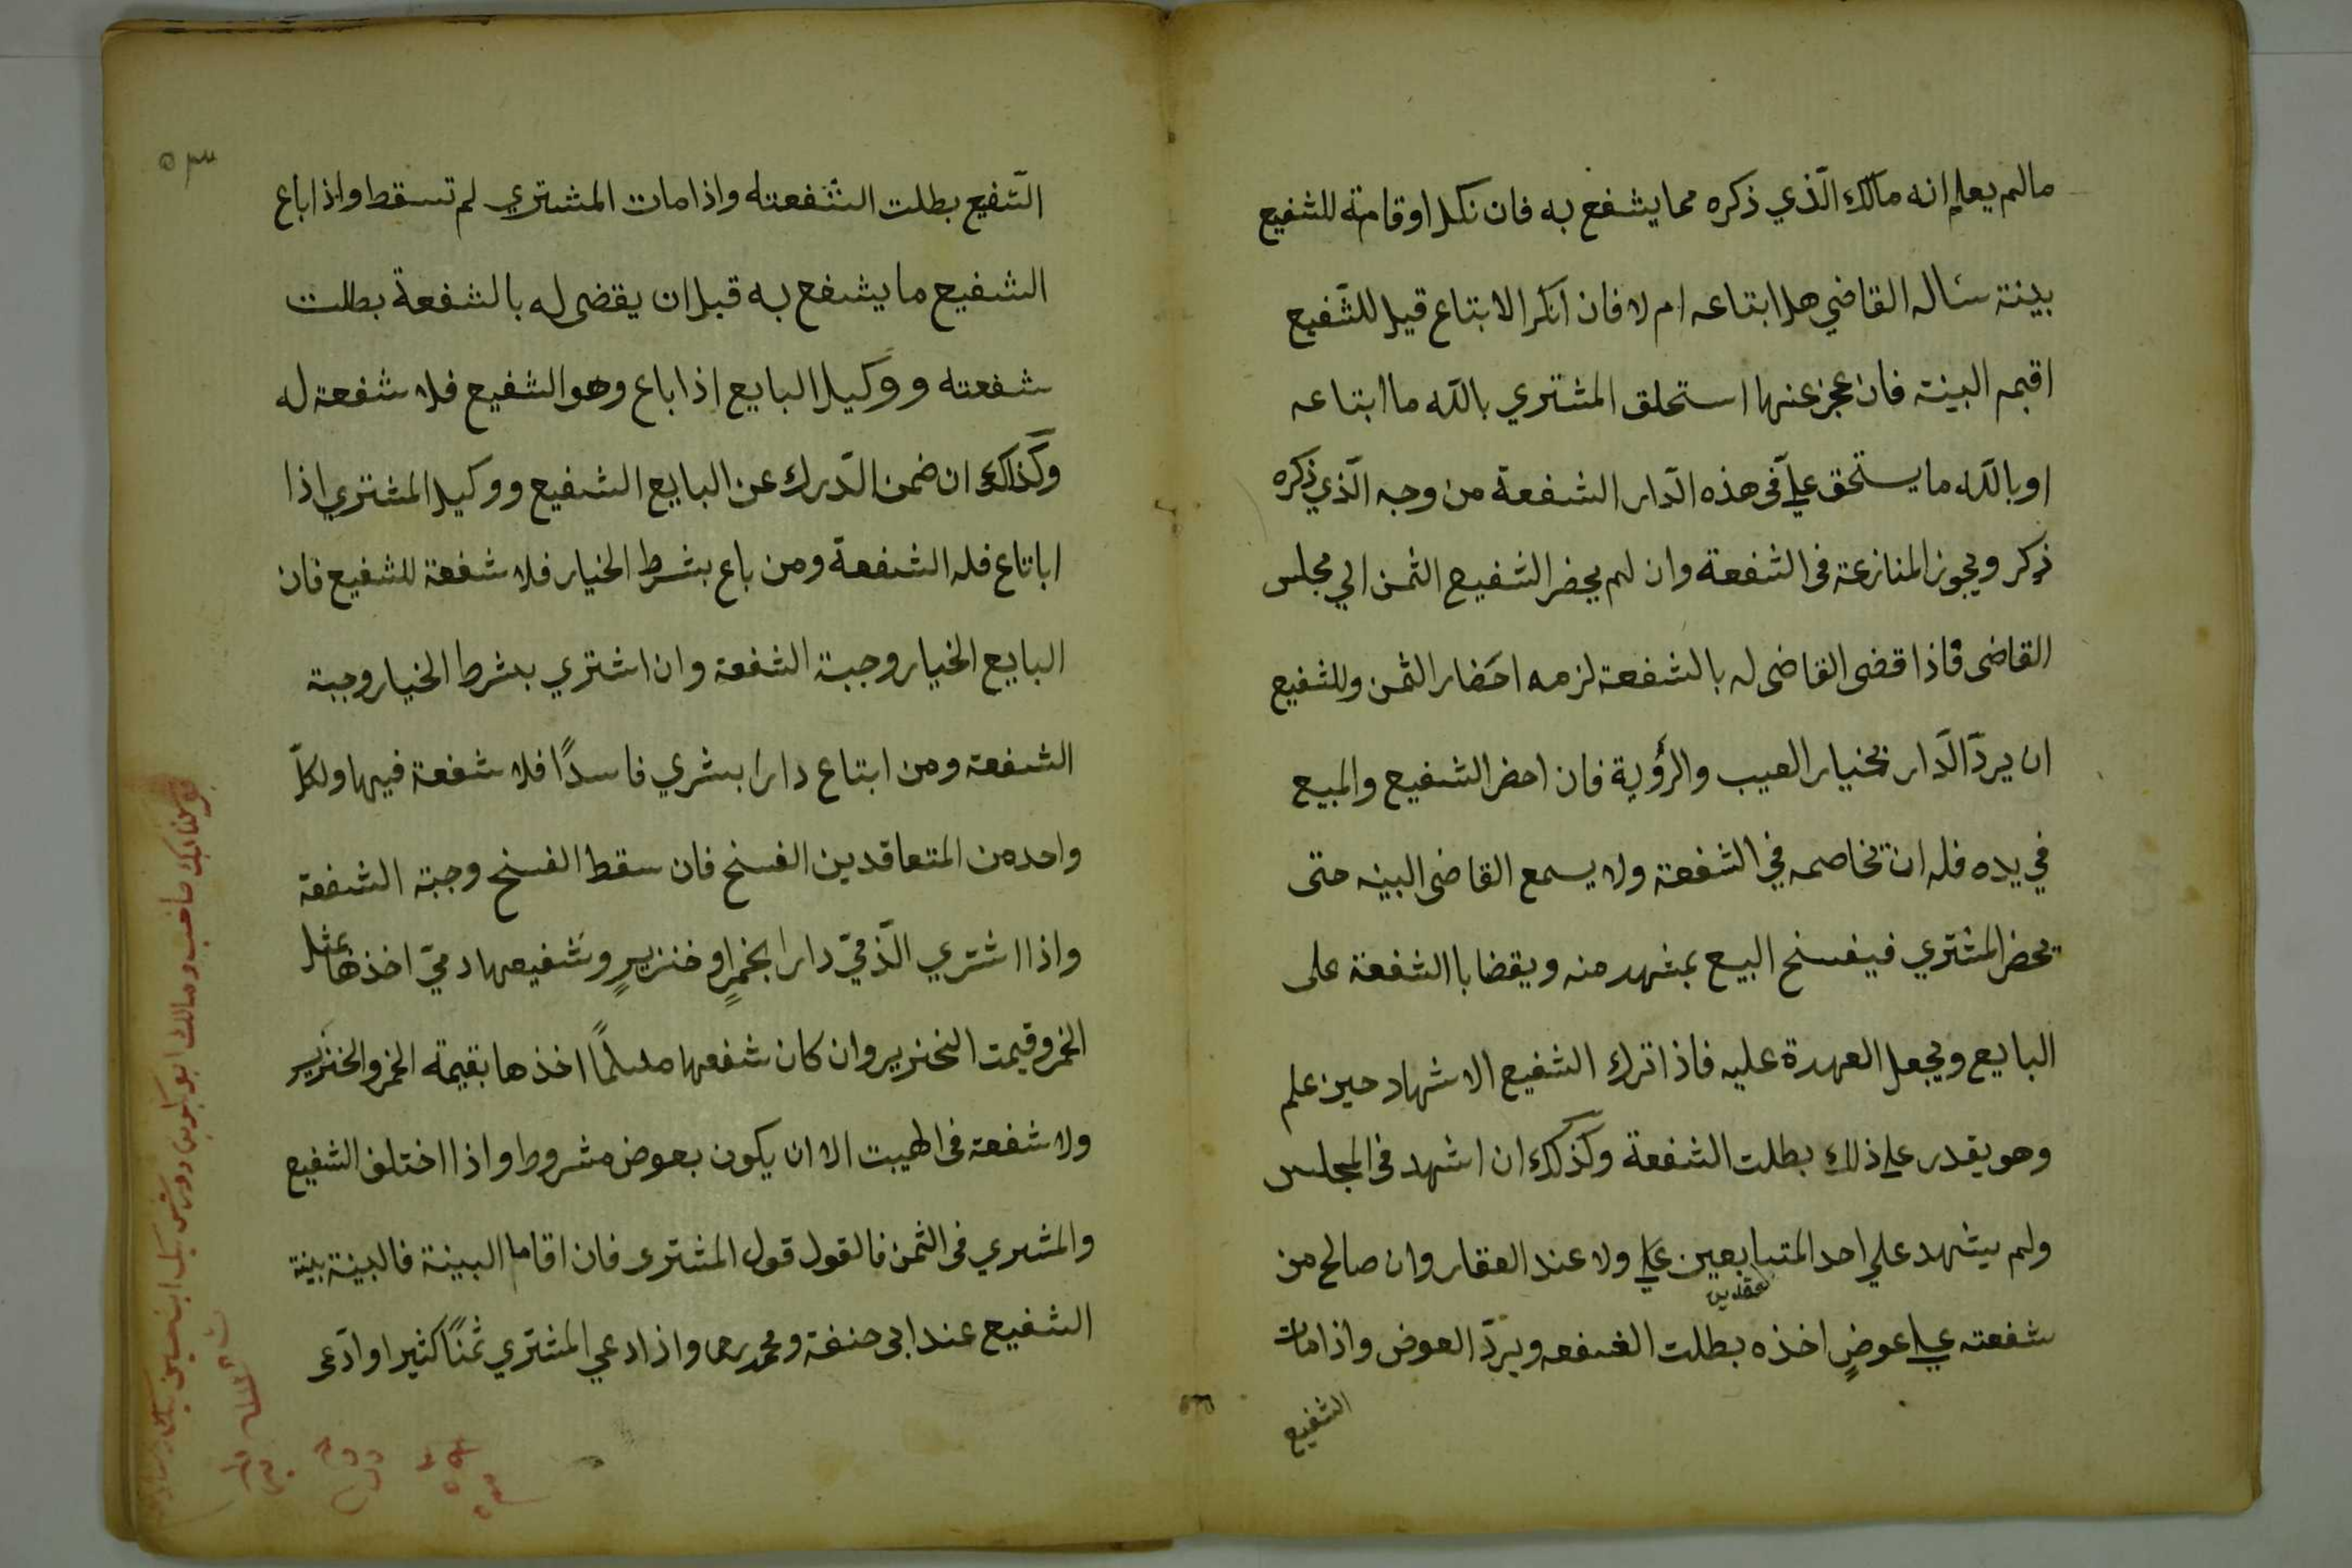 مالم يعلم انه مالك الّذي ذكره مما يشفع به فان نكل او قامة للشفيع
بينة سئاله القاضي هل ابتاعه ام لا فان انكر الابتاع قيل للشّفيع
اقيمه البينة فان عجز عنها استحلق المشتري بالله ما ابتاعه
او بالله ما يستحق عليّ فى هذه الدّار الشفعة من وجه الّذي ذكره
ذكر ويجوز المنازعة فى الشفعة وان لم يحضر الشفيع الثمن الي مجلس
القاضى فاذا قضى القاضى له بالشفعة لزمه احضار الثمن وللشفيع
ان يردّ الدّار بخيار العيب والرؤية فان احضر الشفيع والمبيع
في يده فله ان يخاصمه في الشفعة ولا يسمع القاضى البينه حتى
يحضر المشتري فيفسخ البيع بمشهد منه ويقضا باالشفعة على
البايع ويجعل العهدة عليه فاذا ترك الشفيع الاشهاد حين علم
وهو يقدر على ذلك بطلت الشفعة وكذلك ان اشهد فى المجلس
ولم يشهد علي احد المتبايعين على ولا عند العقار وان صالح من
شفعته على عوضٍ اخذه بطلت الشفعه ويردّ العوض واذا مات
الشفيع
٥٣
الشّفيع بطلت الشفعته واذا مات المشتري لم تسقط واذا باع
الشفيع ما يشفع به قبل ان يقضى له بالشفعة بطلت
شفعته ووكيل البايع اذا باع وهو الشفيع فلا شفعة له
وكذلك ان ضمن الدّرك عن البايع الشفيع ووكيل المشتري اذا
اباتاع فله الشفعة ومن باع بشرط الخيار فلا شفعة للشفيع فان
البايع الخيار وجبة الشفعة وان اشتري بشرط الخيار وجبة
الشفعة ومن ابتاع دارا بشري فاسدًا فلا شفعة فيها ولكلّ
واحد من المتعاقدين الفسخ فان سقط الفسخ وجبة الشفعة
واذا اشتري الذّميّ دارا بخمرٍ او خنزيرٍ وشفيعها دميّ اخذها بمثل
الخمر وقيمت الخنزير وان كان شفعها مسلمًا اخذها بقيمة الخمر والخنزير
ولا شفعة فى الهيبت الا ان يكون بعوض مشروط واذا اختلف الشفيع
والمشري فى الثمن فالقول قول المشترى فان اقاما البينة فالبينة بينة
الشفيع عند ابى حنفة ومحمد رح واذا ادعي المشتري ثمنًا كثيرا وادّعى